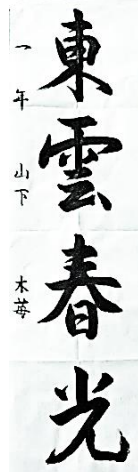 東雲春光
一年 山下 木苺